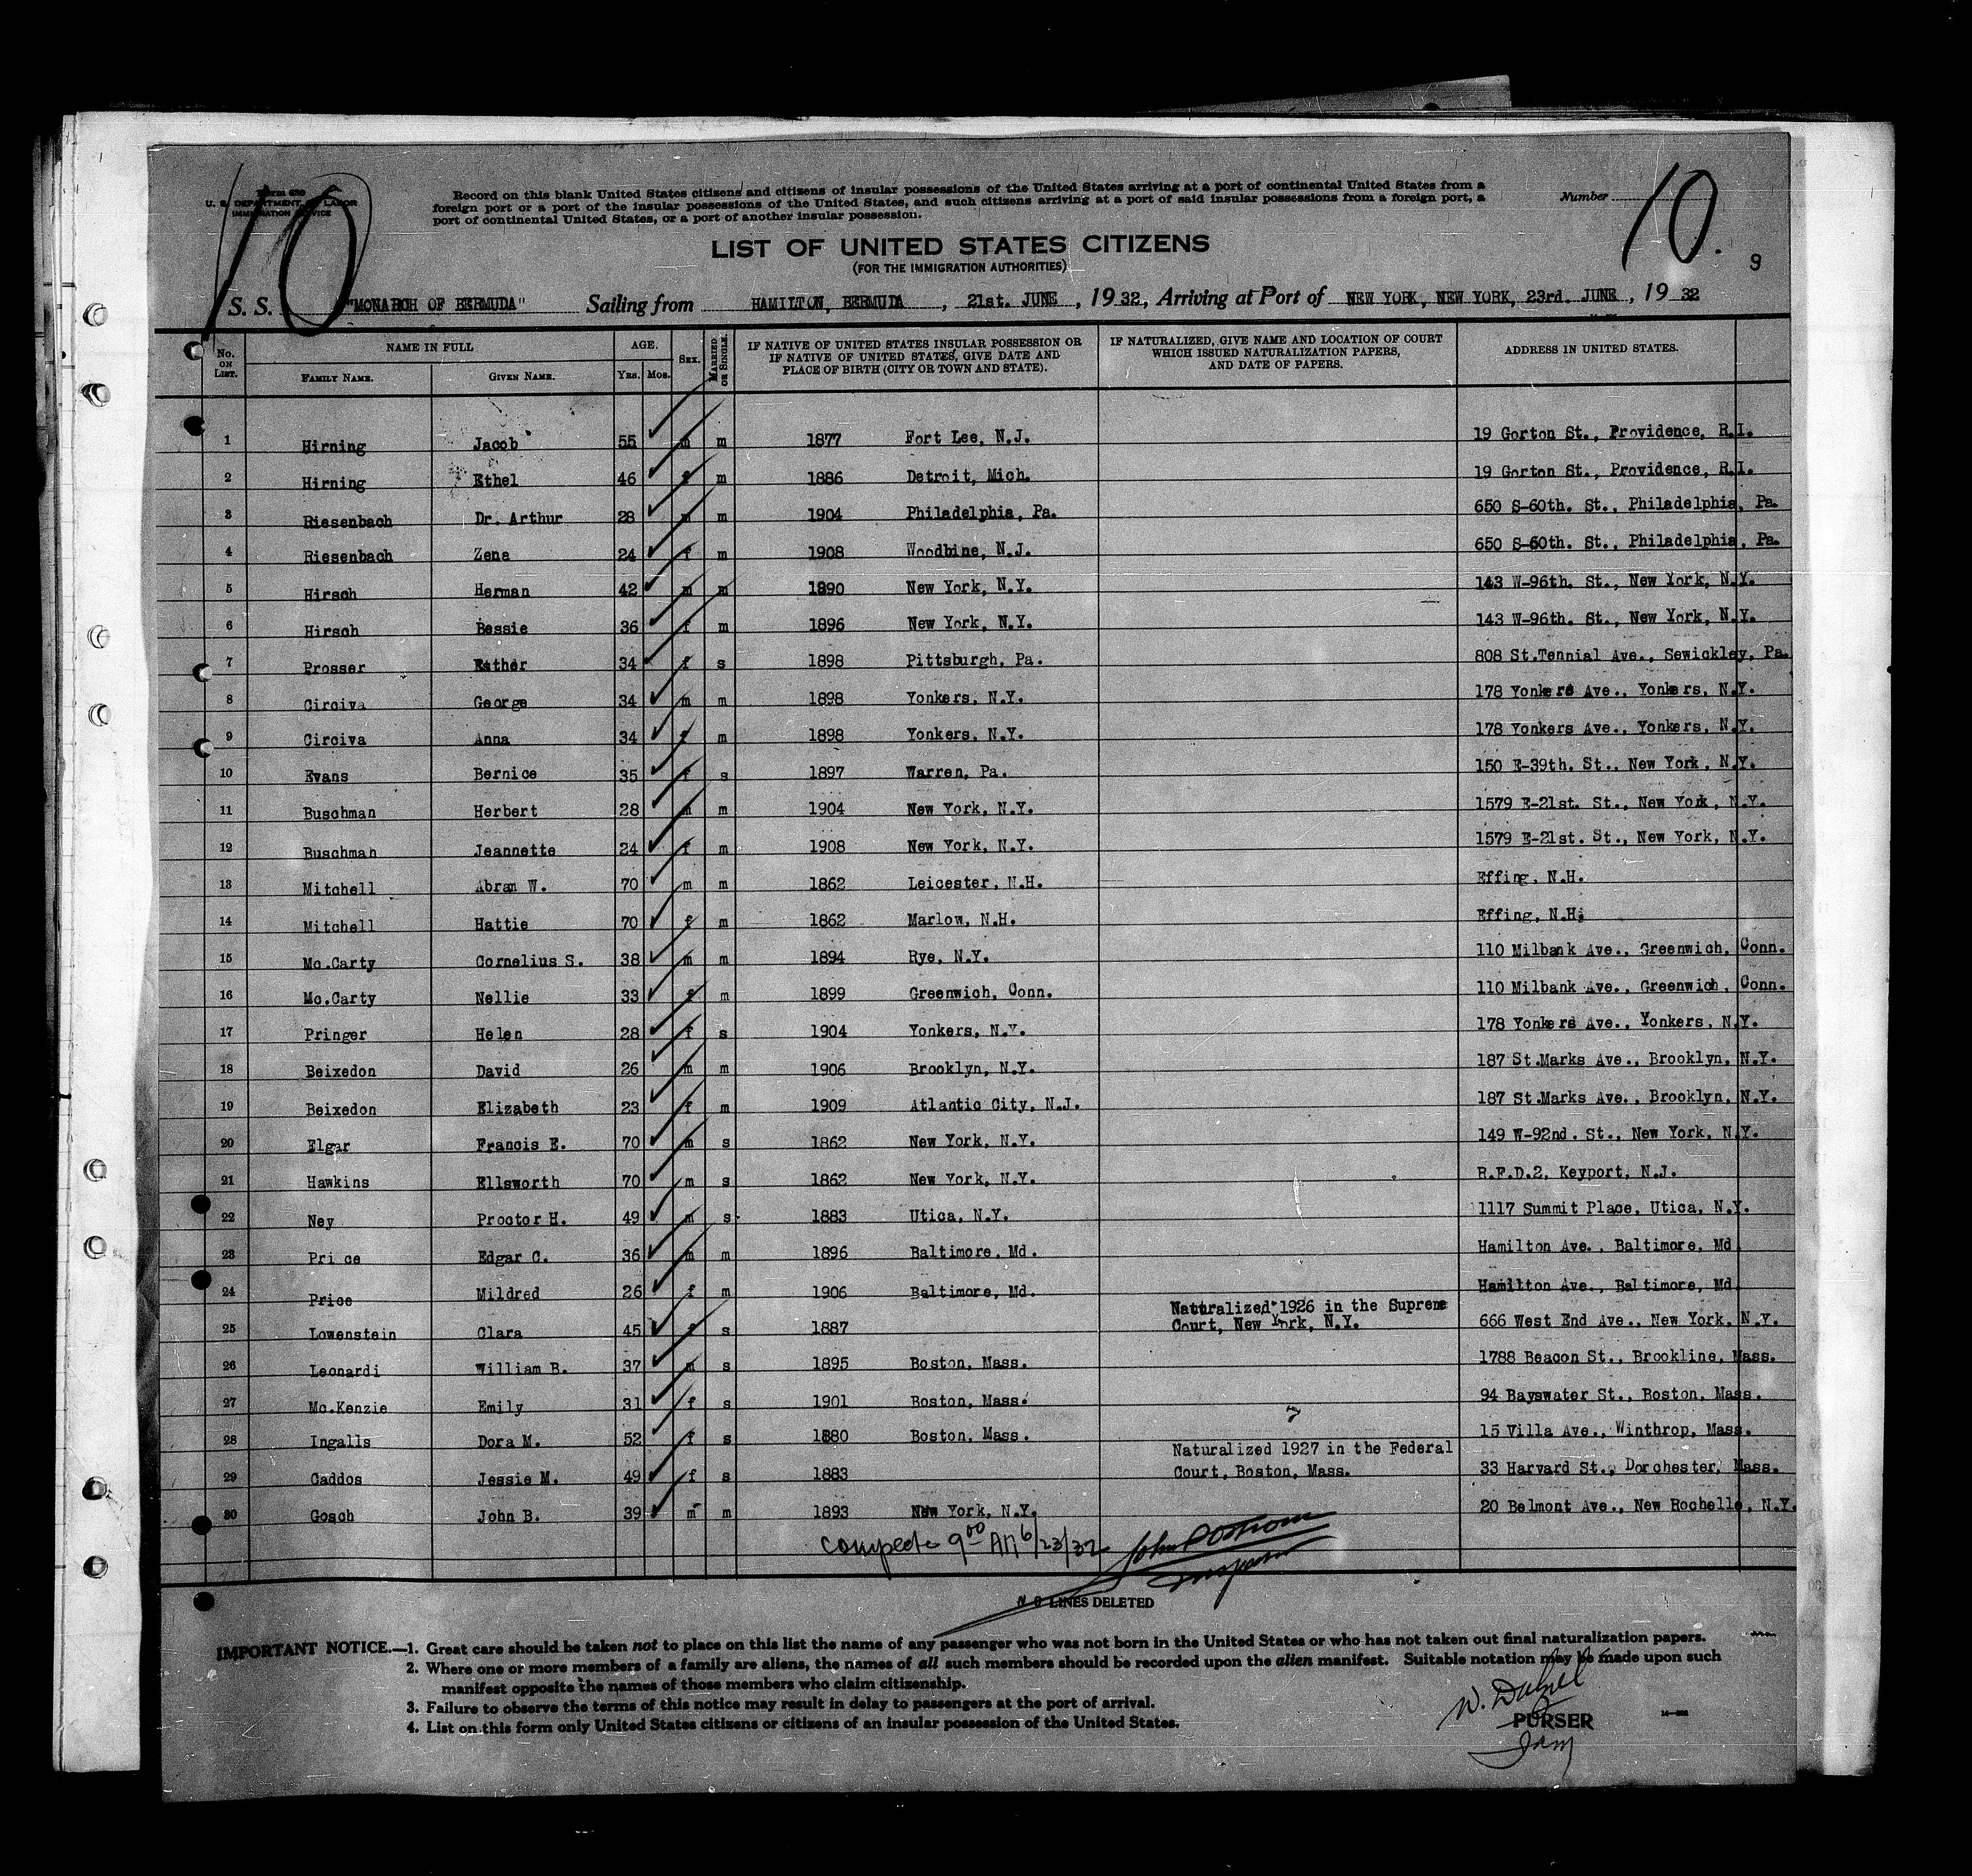 10
Form 630
U. S. DEPARTMENT OF LABOR
IMMIGRATION SERVICE
Record on this blank United States citizens and citizens of insular possessions of the United States arriving at a port of continental United States from a
foreign port or a port of the insular possessions of the United States, and such citizens arriving at a port of said insular possessions from a foreign port, a
port of continental United States, or a port of another insular possession.
Number 10.
9
LIST OF UNITED STATES CITIZENS
(FOR THE IMMIGRATION AUTHORITIES)
S. S. "MONARCH OF BERMUDA" Sailing from HAMILTON, BERMUDA , 21st. JUNE , 19 32, Arriving at Port of NEW YORK, NEW YORK, 23rd. JUNE , 19 32
No. ON LIST. NAME IN FULL FAMILY NAME. GIVEN NAME. AGE. YRS. MOS. SEX. MARRIED OR SINGLE. IF NATIVE OF UNITED STATES INSULAR POSSESSION OR IF NATIVE OF UNITED STATES, GIVE DATE AND PLACE OF BIRTH (CITY OR TOWN AND STATE). IF NATURALIZED, GIVE NAME AND LOCATION OF COURT WHICH ISSUED NATURALIZATION PAPERS, AND DATE OF PAPERS. ADDRESS IN UNITED STATES.
1 Hirning Jacob 55 m m 1877 Fort Lee, N.J. 19 Gorton St., Providence, R.I.
2 Hirning Ethel 46 f m 1886 Detroit, Mich. 19 Gorton St., Providence, R.I.
3 Riesenbach Dr. Arthur 28 m m 1904 Philadelphia, Pa. 650 S-60th. St., Philadelphia, Pa.
4 Riesenbach Zena 24 f m 1908 Woodbine, N.J. 650 S-60th. St., Philadelphia, Pa.
5 Hirsch Herman 42 m m 1890 New York, N.Y. 143 W-96th. St., New York, N.Y.
6 Hirsch Bessie 36 f m 1896 New York, N.Y. 143 W-96th. St., New York, N.Y.
7 Prosser Esther 34 f s 1898 Pittsburgh, Pa. 808 St.Tennial Ave., Sewickley, Pa.
8 Circiva George 34 m m 1898 Yonkers, N.Y. 178 Yonkers Ave., Yonkers, N.Y.
9 Circiva Anna 34 f m 1898 Yonkers, N.Y. 178 Yonkers Ave., Yonkers, N.Y.
10 Evans Bernice 35 f s 1897 Warren, Pa. 150 E-39th. St., New York, N.Y.
11 Buschman Herbert 28 m m 1904 New York, N.Y. 1579 E-21st. St., New York, N.Y.
12 Buschman Jeannette 24 f m 1908 New York, N.Y. 1579 E-21st. St., New York, N.Y.
13 Mitchell Abram W. 70 m m 1862 Leicester, N.H. Effing, N.H.
14 Mitchell Hattie 70 f m 1862 Marlow, N.H. Effing, N.H.
15 Mc.Carty Cornelius S. 38 m m 1894 Rye, N.Y. 110 Milbank Ave., Greenwich, Conn.
16 Mc.Carty Nellie 33 f m 1899 Greenwich, Conn. 110 Milbank Ave., Greenwich, Conn.
17 Pringer Helen 28 f s 1904 Yonkers, N.Y. 178 Yonkers Ave., Yonkers, N.Y.
18 Beixedon David 26 m m 1906 Brooklyn, N.Y. 187 St.Marks Ave., Brooklyn, N.Y.
19 Beixedon Elizabeth 23 f m 1909 Atlantic City, N.J. 187 St.Marks Ave., Brooklyn, N.Y.
20 Elgar Francis E. 70 m s 1862 New York, N.Y. 149 W-92nd. St., New York, N.Y.
21 Hawkins Ellsworth 70 m s 1862 New York, N.Y. R.F.D.2, Keyport, N.J.
22 Ney Proctor H. 49 m s 1883 Utica, N.Y. 1117 Summit Place, Utica, N.Y.
23 Price Edgar C. 36 m m 1896 Baltimore, Md. Hamilton Ave., Baltimore, Md.
24 Price Mildred 26 f m 1906 Baltimore, Md. Hamilton Ave., Baltimore, Md.
Naturalized 1926 in the Supreme
25 Lowenstein Clara 45 f s 1887 Court, New York, N.Y. 666 West End Ave., New York, N.Y.
26 Leonardi William B. 37 m s 1895 Boston, Mass. 1788 Beacon St., Brookline, Mass.
27 Mc.Kenzie Emily 31 f s 1901 Boston, Mass. 94 Bayswater St., Boston, Mass.
28 Ingalls Dora M. 52 f s 1880 Boston, Mass. 15 Villa Ave., Winthrop, Mass.
Naturalized 1927 in the Federal
29 Caddos Jessie M. 49 f s 1883 Court, Boston, Mass. 33 Harvard St., Dorchester, Mass.
30 Gosch John B. 39 m m 1893 New York, N.Y. 20 Belmont Ave., New Rochelle, N.Y.
9 00 AM 6/23/32 John
NO LINES DELETED
IMPORTANT NOTICE.—1. Great care should be taken not to place on this list the name of any passenger who was not born in the United States or who has not taken out final naturalization papers.
2. Where one or more members of a family are aliens, the names of all such members should be recorded upon the alien manifest. Suitable notation may be made upon such
manifest opposite the names of those members who claim citizenship.
3. Failure to observe the terms of this notice may result in delay to passengers at the port of arrival.
4. List on this form only United States citizens or citizens of an insular possession of the United States.
PURSER